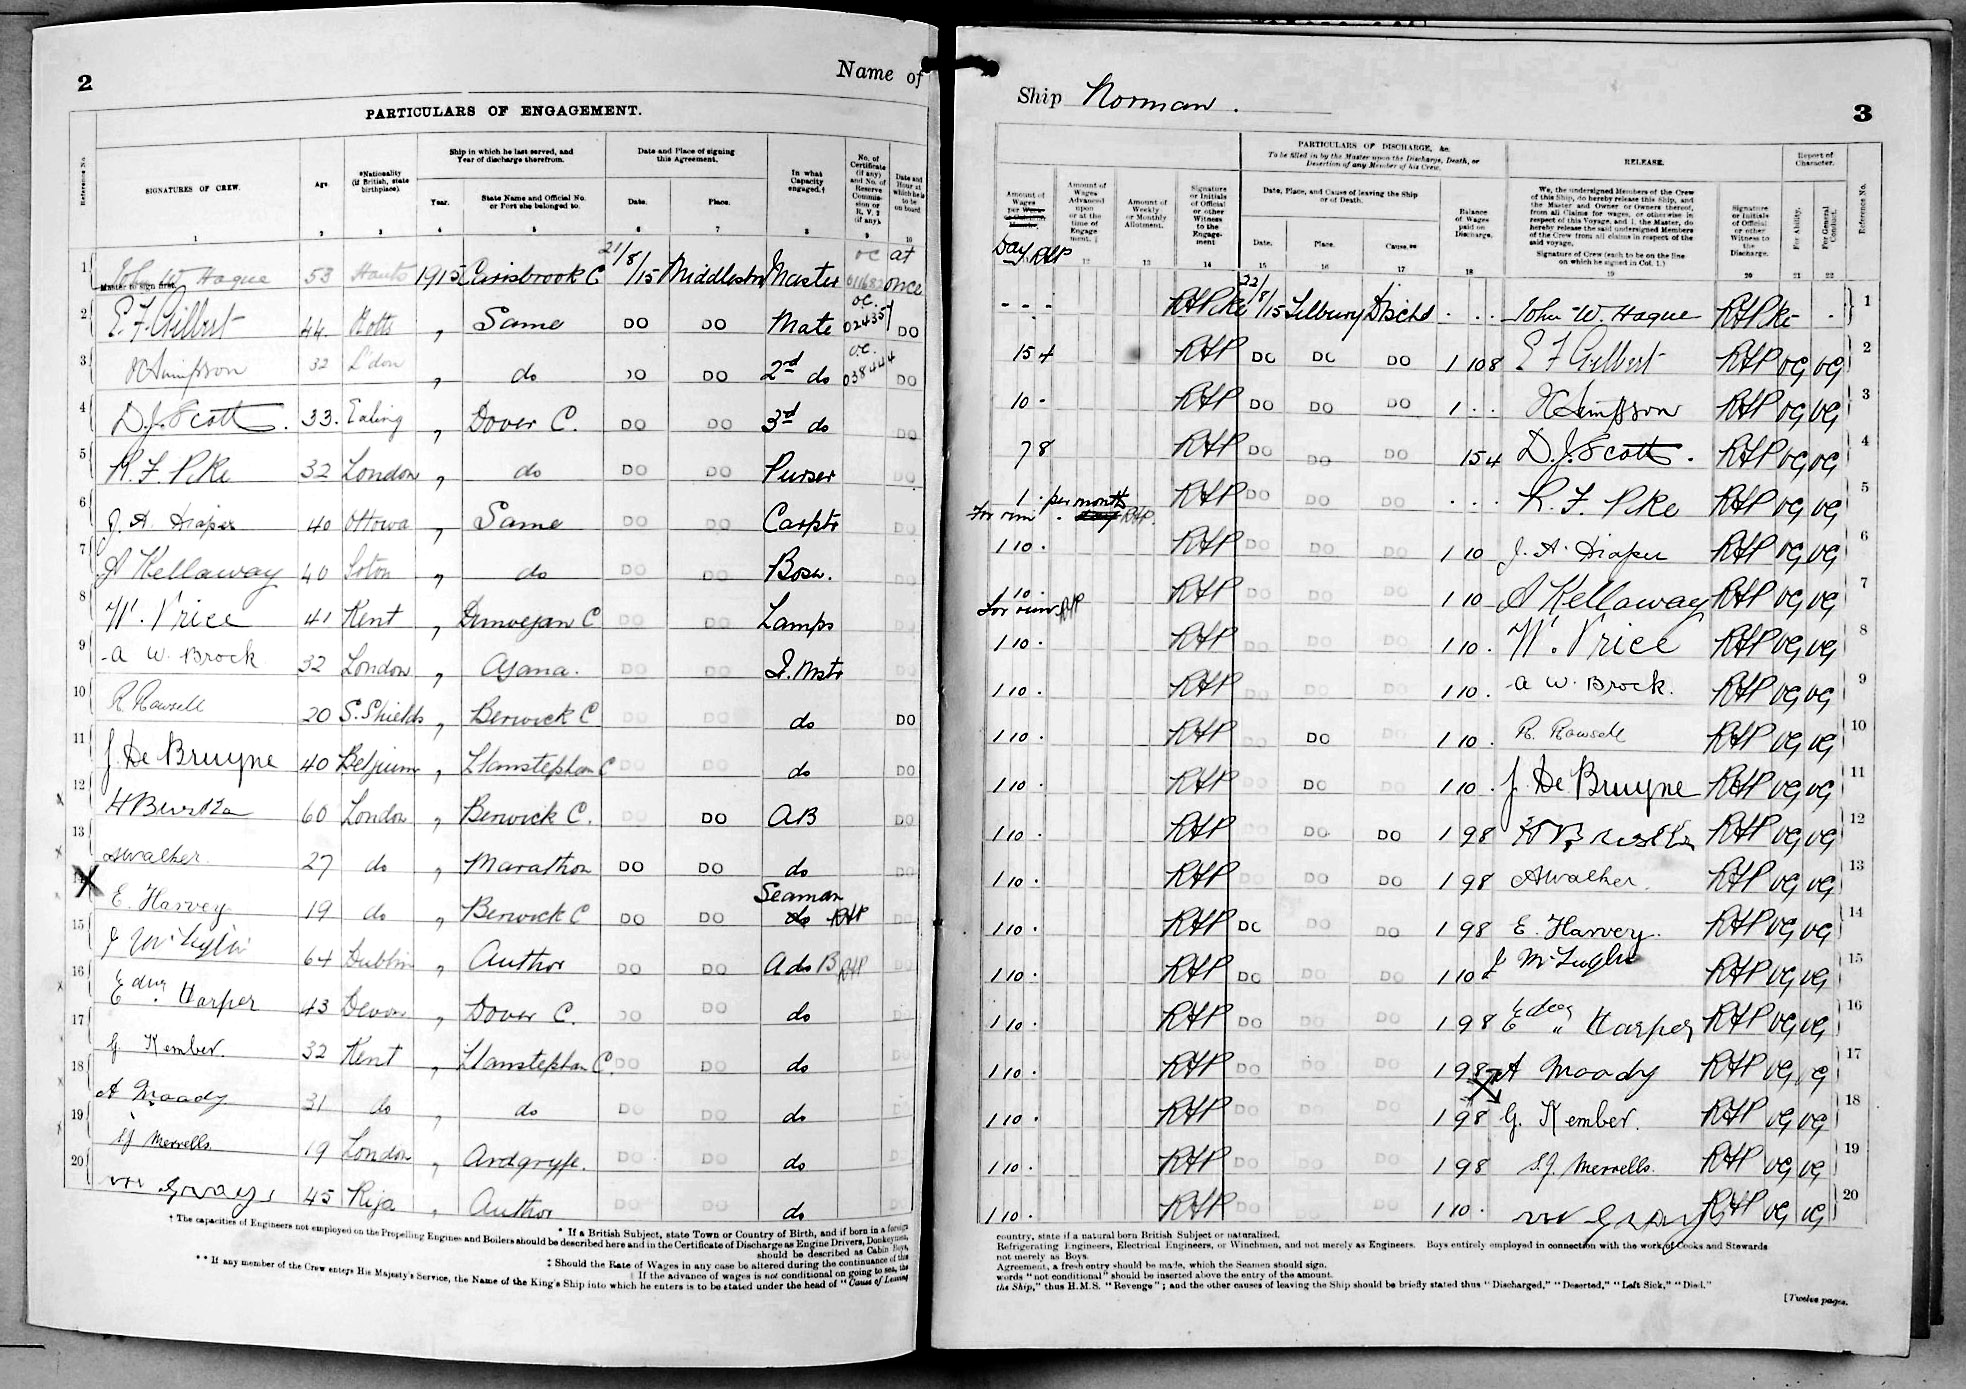 2
Name of
PARTICULARS OF ENGAGEMENT.
Reference No.
SIGNATURES OF CREW.
Age.
*Nationality (if British, state birthplace).
Ship in which he last served, and Year of discharge therefrom.
Year.
State Name and Official No. or Port she belonged to.
Date and Place of signing this Agreement.
Date.
Place.
In what Capacity engaged.†
No. of Certificate (if any) and No. of Reserve Commission or R.V.2 (if any).
Date and Hour at which he is to be on board
1 2 3 4 5 6 7 8 9 10
1 John W Hague 53 Hants 1915 Carisbrook C 21/8/15 Middlesbro Master oc 011682 at once
Master to sign first.
2 E. F. Gilbert 44. Notts " Same DO DO Mate oc. 024357 DO
3 Simpson 32 L'don " do DO DO 2nd do oc. 038444 DO
4 D. J. Scott. 33. Ealing " Dover C. DO DO 3rd do DO
5 R. F. Pike 32 London " do DO DO Purser DO
6 J. A. Draper 40 Ottowa " Same DO DO Carptr DO
7 Kellaway 40 Soton " do DO DO Bosn. DO
8 W. Price 41 Kent " Dunvegan C DO DO Lamps DO
9 A W. Brock 32 London " DO DO DO
10 R Rowsell 20 S. Shields " Berwick C DO DO do DO
11 J. De Bruyne 40 Belgium " Llanstephan C DO DO do DO
12 60 London " Berwick C. DO DO AB DO
13 A Walker. 27 do " Marathon DO DO do DO
14 E. Harvey 19 do " Berwick C DO DO Seaman do DO
15 64 Dublin " Author DO DO A do B DO
16 Harper 43 Devon " Dover C. DO DO do
17 G Kember. 32 Kent " Llanstephan C. DO DO do DO
18 A Moody 31 do " do DO DO do
19 Merrells 19 London " DO DO do
20 45 Riga " Author DO DO do
* If a British Subject, state Town or Country of Birth, and if born in a foreign
† The capacities of Engineers not employed on the Propelling Engines and Boilers should be described here and in the Certificate of Discharge as Engine Drivers, Donkeymen,
should be described as Cabin Boys,
‡ Should the Rate of Wages in any case be altered during the continuance of this
| If the advance of wages is not conditional on going to sea, the
** If any member of the Crew enters His Majesty's Service, the Name of the King's Ship into which he enters is to be stated under the head of "Cause of Leaving
Ship Norman.
3
PARTICULARS OF DISCHARGE, &c.
To be filled in by the Master upon the Discharge, Death, or Desertion of any Member of his Crew.
RELEASE.
Report of Character.
Amount of Wages per
Day
Amount of Wages Advanced upon or at the time of Engagement.
Amount of Weekly or Monthly Allotment.
Signature or Initials of Official or other Witness to the Engagement
Date, Place, and Cause of leaving the Ship or of Death.
Date.
Place.
Cause.**
Balance of Wages paid on Discharge.
We, the undersigned Members of the Crew do hereby release this Ship, and the Master and Owner or Owners thereof, from all Claims for wages, or otherwise in respect of this Voyage, and I, the Master, do hereby release the said undersigned Members of the Crew from all claims in respect of the said voyage.
Signature of Crew (each to be on the line on which he signed in Col. 1.)
Signature or Initials of Official or other Witness to Discharge.
For Ability.
For General Conduct.
Reference No.
12 13 14 15 16 17 18 19 20 21 22
- - - 22/8/15 Tilbury Dischd John W. Hague 1
15 4 DO DO DO 1 10 8 E F Gilbert VG VG 2
10 - DO DO DO 1 Simpson VG VG 3
7 8 DO DO DO 15 4 D. J. Scott. VG VG 4
1 . per month DO DO DO R. F. Pike VG VG 5
For run
1 10 . DO DO DO 1 10 J. A. Draper VG VG 6
1 10 . DO DO DO 1 10 Kellaway VG VG 7
for run
1 10 . DO DO DO 1 10 . W. Price VG VG 8
1 10 . DO DO DO 1 10 . A W. Brock. VG VG 9
1 10 . DO DO DO 1 10 . R. Rowsell VG VG 10
1 10 . DO DO DO 1 10 . J. De Bruyne VG VG 11
1 10 . DO DO DO 1 9 8 VG VG 12
1 10 . DO DO DO 1 9 8 A Walker. VG VG 13
1 10 . DO DO DO 1 9 8 E. Harvey. VG VG 14
1 10 . DO DO DO 1 10 VG VG 15
1 10 . DO DO DO 1 9 8 Harper VG VG 16
1 10 . DO DO DO 1 9 8 A Moody VG VG 17
1 10 . DO DO DO 1 9 8 G. Kember. VG VG 18
1 10 . DO DO DO 1 9 8 S. J. Merrells. VG VG 19
1 10 . DO DO DO 1 10 . VG VG 20
country, state if a natural born British Subject or naturalized.
Refrigerating Engineers, Electrical Engineers, or Winchmen, and not merely as Engineers. Boys entirely employed in connection with the work of Cooks and Stewards
not merely as Boys.
Agreement, a fresh entry should be made, which the Seamen should sign.
words "not conditional" should be inserted above the entry of the amount.
the Ship," thus H.M.S. "Revenge"; and the other causes of leaving the Ship should be briefly stated thus "Discharged," "Deserted," "Left Sick," "Died."
[Twelve pages.